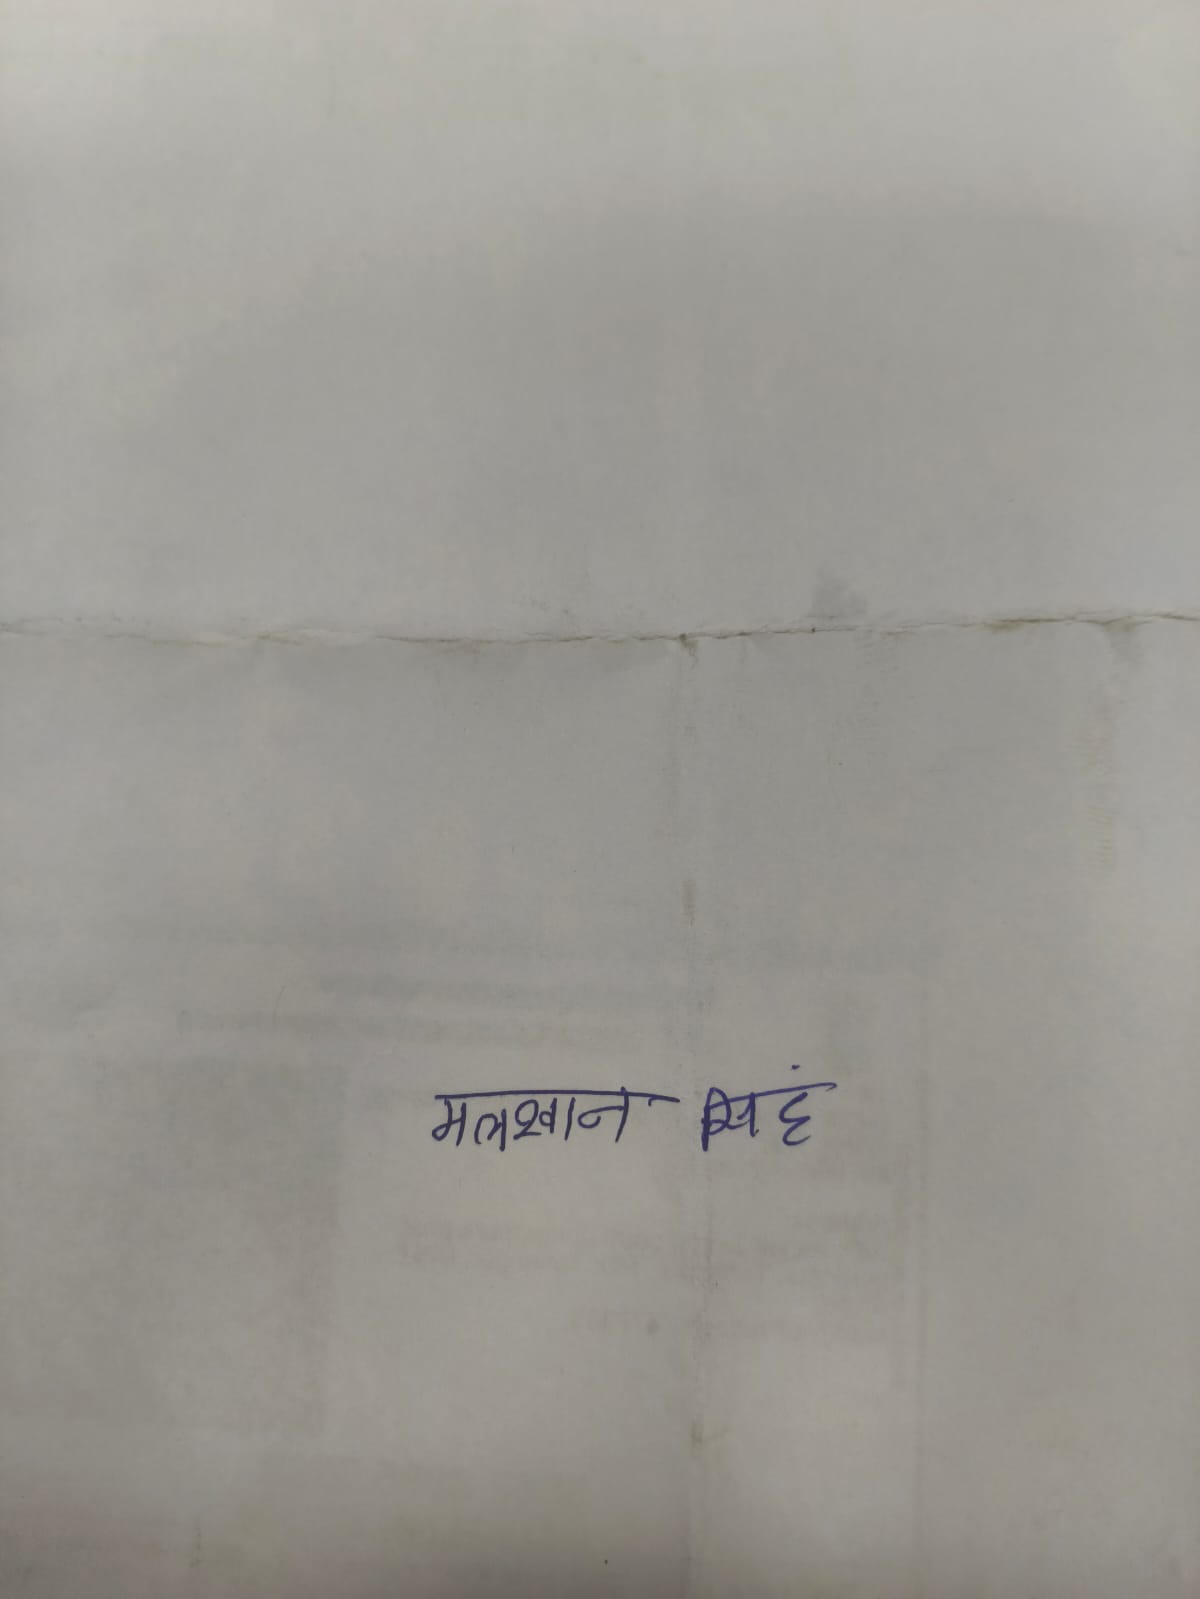 मलखान सिहं